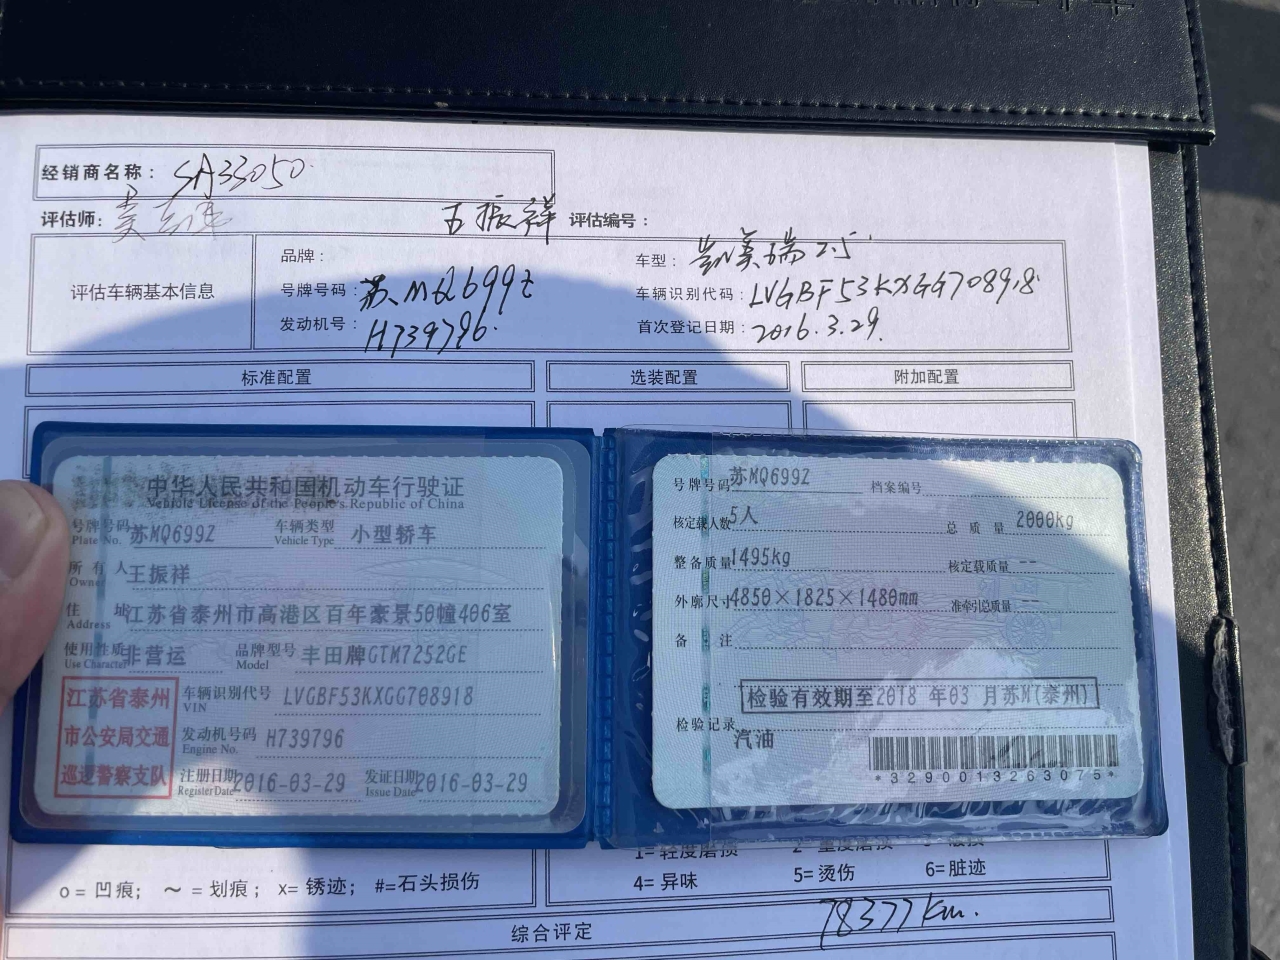 经销商名称： SA33050
评估师：
王振祥 评估编号：
评估车辆基本信息
品牌： 车型： 凯美瑞 2.5
号牌号码： 苏MQ699Z 车辆识别代码： LVGBF53KXGG708918
发动机号： H739796. 首次登记日期： 2016.3.29.
标准配置 选装配置 附加配置
中华人民共和国机动车行驶证
Vehicle License of the People's Republic of China
号牌号码 苏MQ699Z 车辆类型 小型轿车
Plate No. Vehicle Type
所有人 王振祥
Owner
住址 江苏省泰州市高港区百年豪景50幢406室
Address
使用性质 非营运 品牌型号 丰田牌GTM7252GE
Use Character Model
江苏省泰州
市公安局交通
巡逻警察支队
车辆识别代号 LVGBF53KXGG708918
VIN
发动机号码 H739796
Engine No.
注册日期 2016-03-29 发证日期 2016-03-29
Register Date Issue Date
号牌号码 苏MQ699Z 档案编号
核定载人数 5人 总质量 2000kg
整备质量 1495kg 核定载质量 --
外廓尺寸 4850×1825×1480mm 准牵引总质量 --
备注
检验有效期至2018 年03 月苏M(泰州)
检验记录
汽油
*3290013263075*
1=轻度磨损 2=重度磨损
o= 凹痕； ～ = 划痕； x= 锈迹； #=石头损伤
4= 异味 5= 烫伤 6=脏迹
78377km.
综合评定